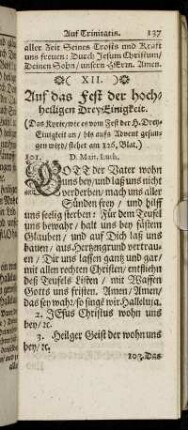 Auf Trinitatis. 137
aller Zeit Seines Trosts und Kraft
uns freuen: Durch Jesum Christum/
Deinen Sohn/ unsern HErrn. Amen.
( XII. )
Auf das Fest der hoch-
heiligen DreyEinigkeit.
(Das Kyrie, wie es vom Fest der H. Drey-
Einigkeit an / bis aufs Advent gesun-
gen wird/ stehet am 126. Blat.)
101. D. Mart. Luth.
GOTT der Vater wohn
uns bey/ und laß uns nicht
verderben/ mach uns aller
Sünden frey / und hilff
uns seelig sterben: Für dem Teufel
uns bewahr/ halt uns bey festem
Glauben / und auf Dich laß uns
bauen / aus Hertzengrund vertrau-
en / Dir uns lassen gantz und gar/
mit allen rechten Christen/ entfliehn
des Teufels Listen/ mit Waffen
Gotts uns fristen. Amen/ Amen/
das sey wahr/ so singē wir Halleluja.
2. JEsus Christus wohn uns
bey/ ꝛc.
3. Heilger Geist der wohn uns
bey/ ꝛc.
103. Das